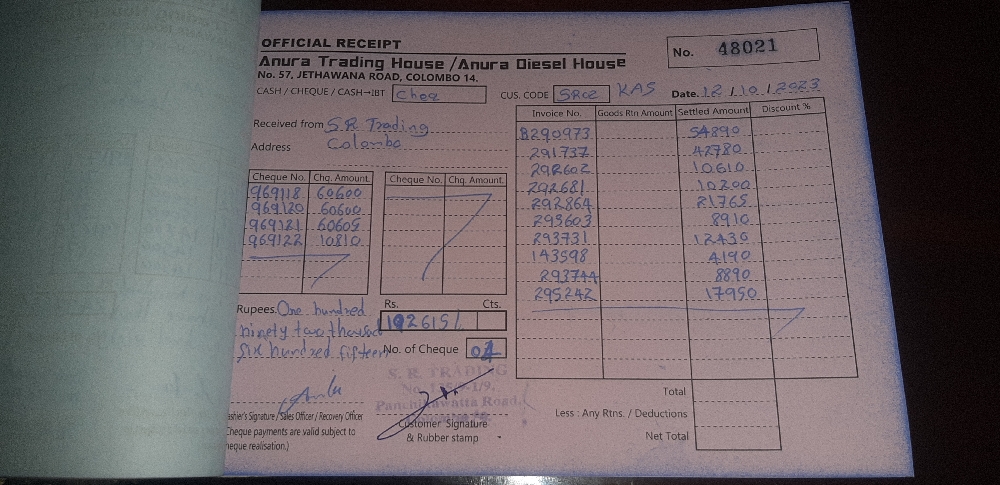 OFFICIAL RECEIPT
Anura Trading House / Anura Diesel House
No. 57, JETHAWANA ROAD, COLOMBO 14.
No. 48021
CASH / CHEQUE / CASH→IBT Cheq
CUS. CODE SR02 KAS
Date. 12 / 10 / 2023
Received from S.R Trading
Address Colombo
Cheque No. Chq. Amount
969118 60600
969120 60600
969121 60605
969122 10810
Cheque No. Chq. Amount
Invoice No. Goods Rtn Amount Settled Amount Discount %
8290973 54890
291737 42780
292602 10610
292681 10200
292864 21765
293603 8910
293731 12430
143598 4190
293744 8890
295242 17950
Rupees. One hundred
ninety two thousand
six hundred fifteen
Rs. Cts.
192615/
No. of Cheque 04
S. R. TRADING
Panchikawatta Road,
Cashier's Signature / Sales Officer / Recovery Officer
Cheque payments are valid subject to
cheque realisation.)
Customer Signature
& Rubber stamp
Total
Less : Any Rtns. / Deductions
Net Total